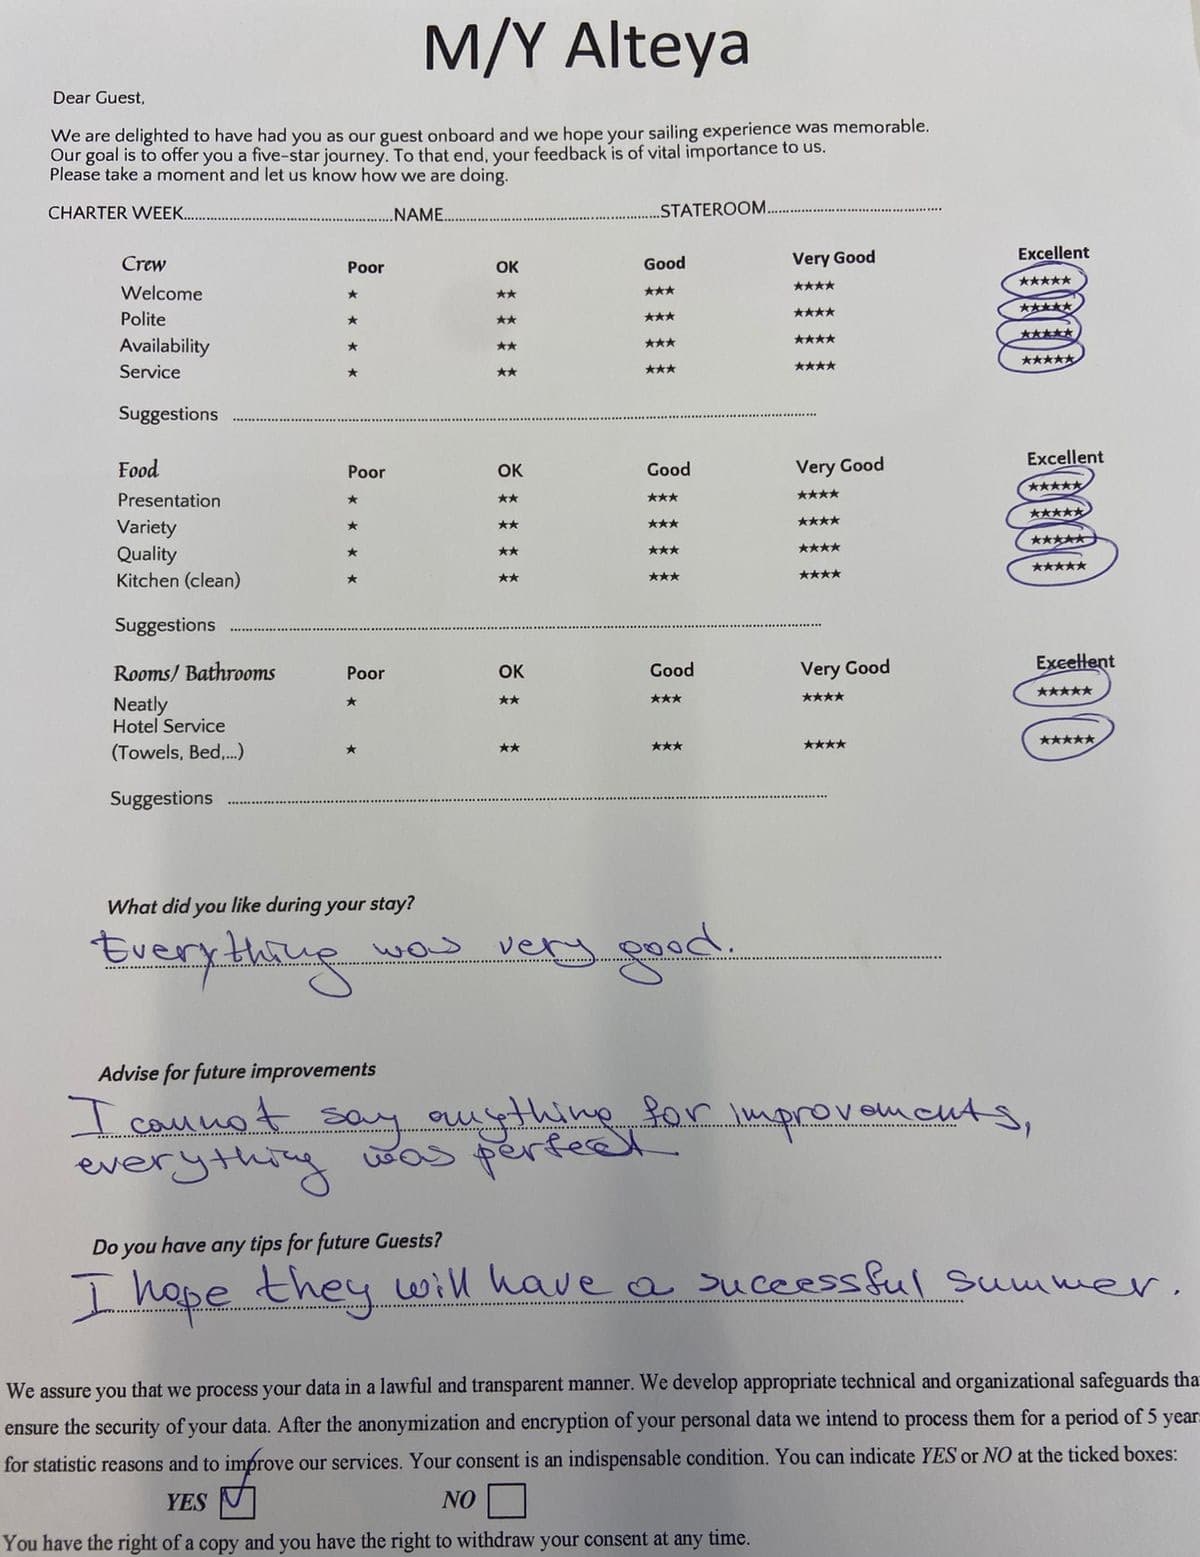 M/Y Alteya
Dear Guest,
We are delighted to have had you as our guest onboard and we hope your sailing experience was memorable.
Our goal is to offer you a five-star journey. To that end, your feedback is of vital importance to us.
Please take a moment and let us know how we are doing.
CHARTER WEEK....................NAME....................STATEROOM....................
Crew Poor OK Good Very Good Excellent
Welcome ★ ★★ ★★★ ★★★★ ★★★★★
Polite ★ ★★ ★★★ ★★★★ ★★★★★
Availability ★ ★★ ★★★ ★★★★ ★★★★★
Service ★ ★★ ★★★ ★★★★ ★★★★★
Suggestions ....................
Food Poor OK Good Very Good Excellent
Presentation ★ ★★ ★★★ ★★★★ ★★★★★
Variety ★ ★★ ★★★ ★★★★ ★★★★★
Quality ★ ★★ ★★★ ★★★★ ★★★★★
Kitchen (clean) ★ ★★ ★★★ ★★★★ ★★★★★
Suggestions ....................
Rooms/ Bathrooms Poor OK Good Very Good Excellent
Neatly ★ ★★ ★★★ ★★★★ ★★★★★
Hotel Service
(Towels, Bed,...) ★ ★★ ★★★ ★★★★ ★★★★★
Suggestions ....................
What did you like during your stay?
Everything was very good.
Advise for future improvements
I cannot say anything for improvements,
everything was perfect
Do you have any tips for future Guests?
I hope they will have a successful summer.
We assure you that we process your data in a lawful and transparent manner. We develop appropriate technical and organizational safeguards tha
ensure the security of your data. After the anonymization and encryption of your personal data we intend to process them for a period of 5 year
for statistic reasons and to improve our services. Your consent is an indispensable condition. You can indicate YES or NO at the ticked boxes:
YES ☑ NO ☐
You have the right of a copy and you have the right to withdraw your consent at any time.